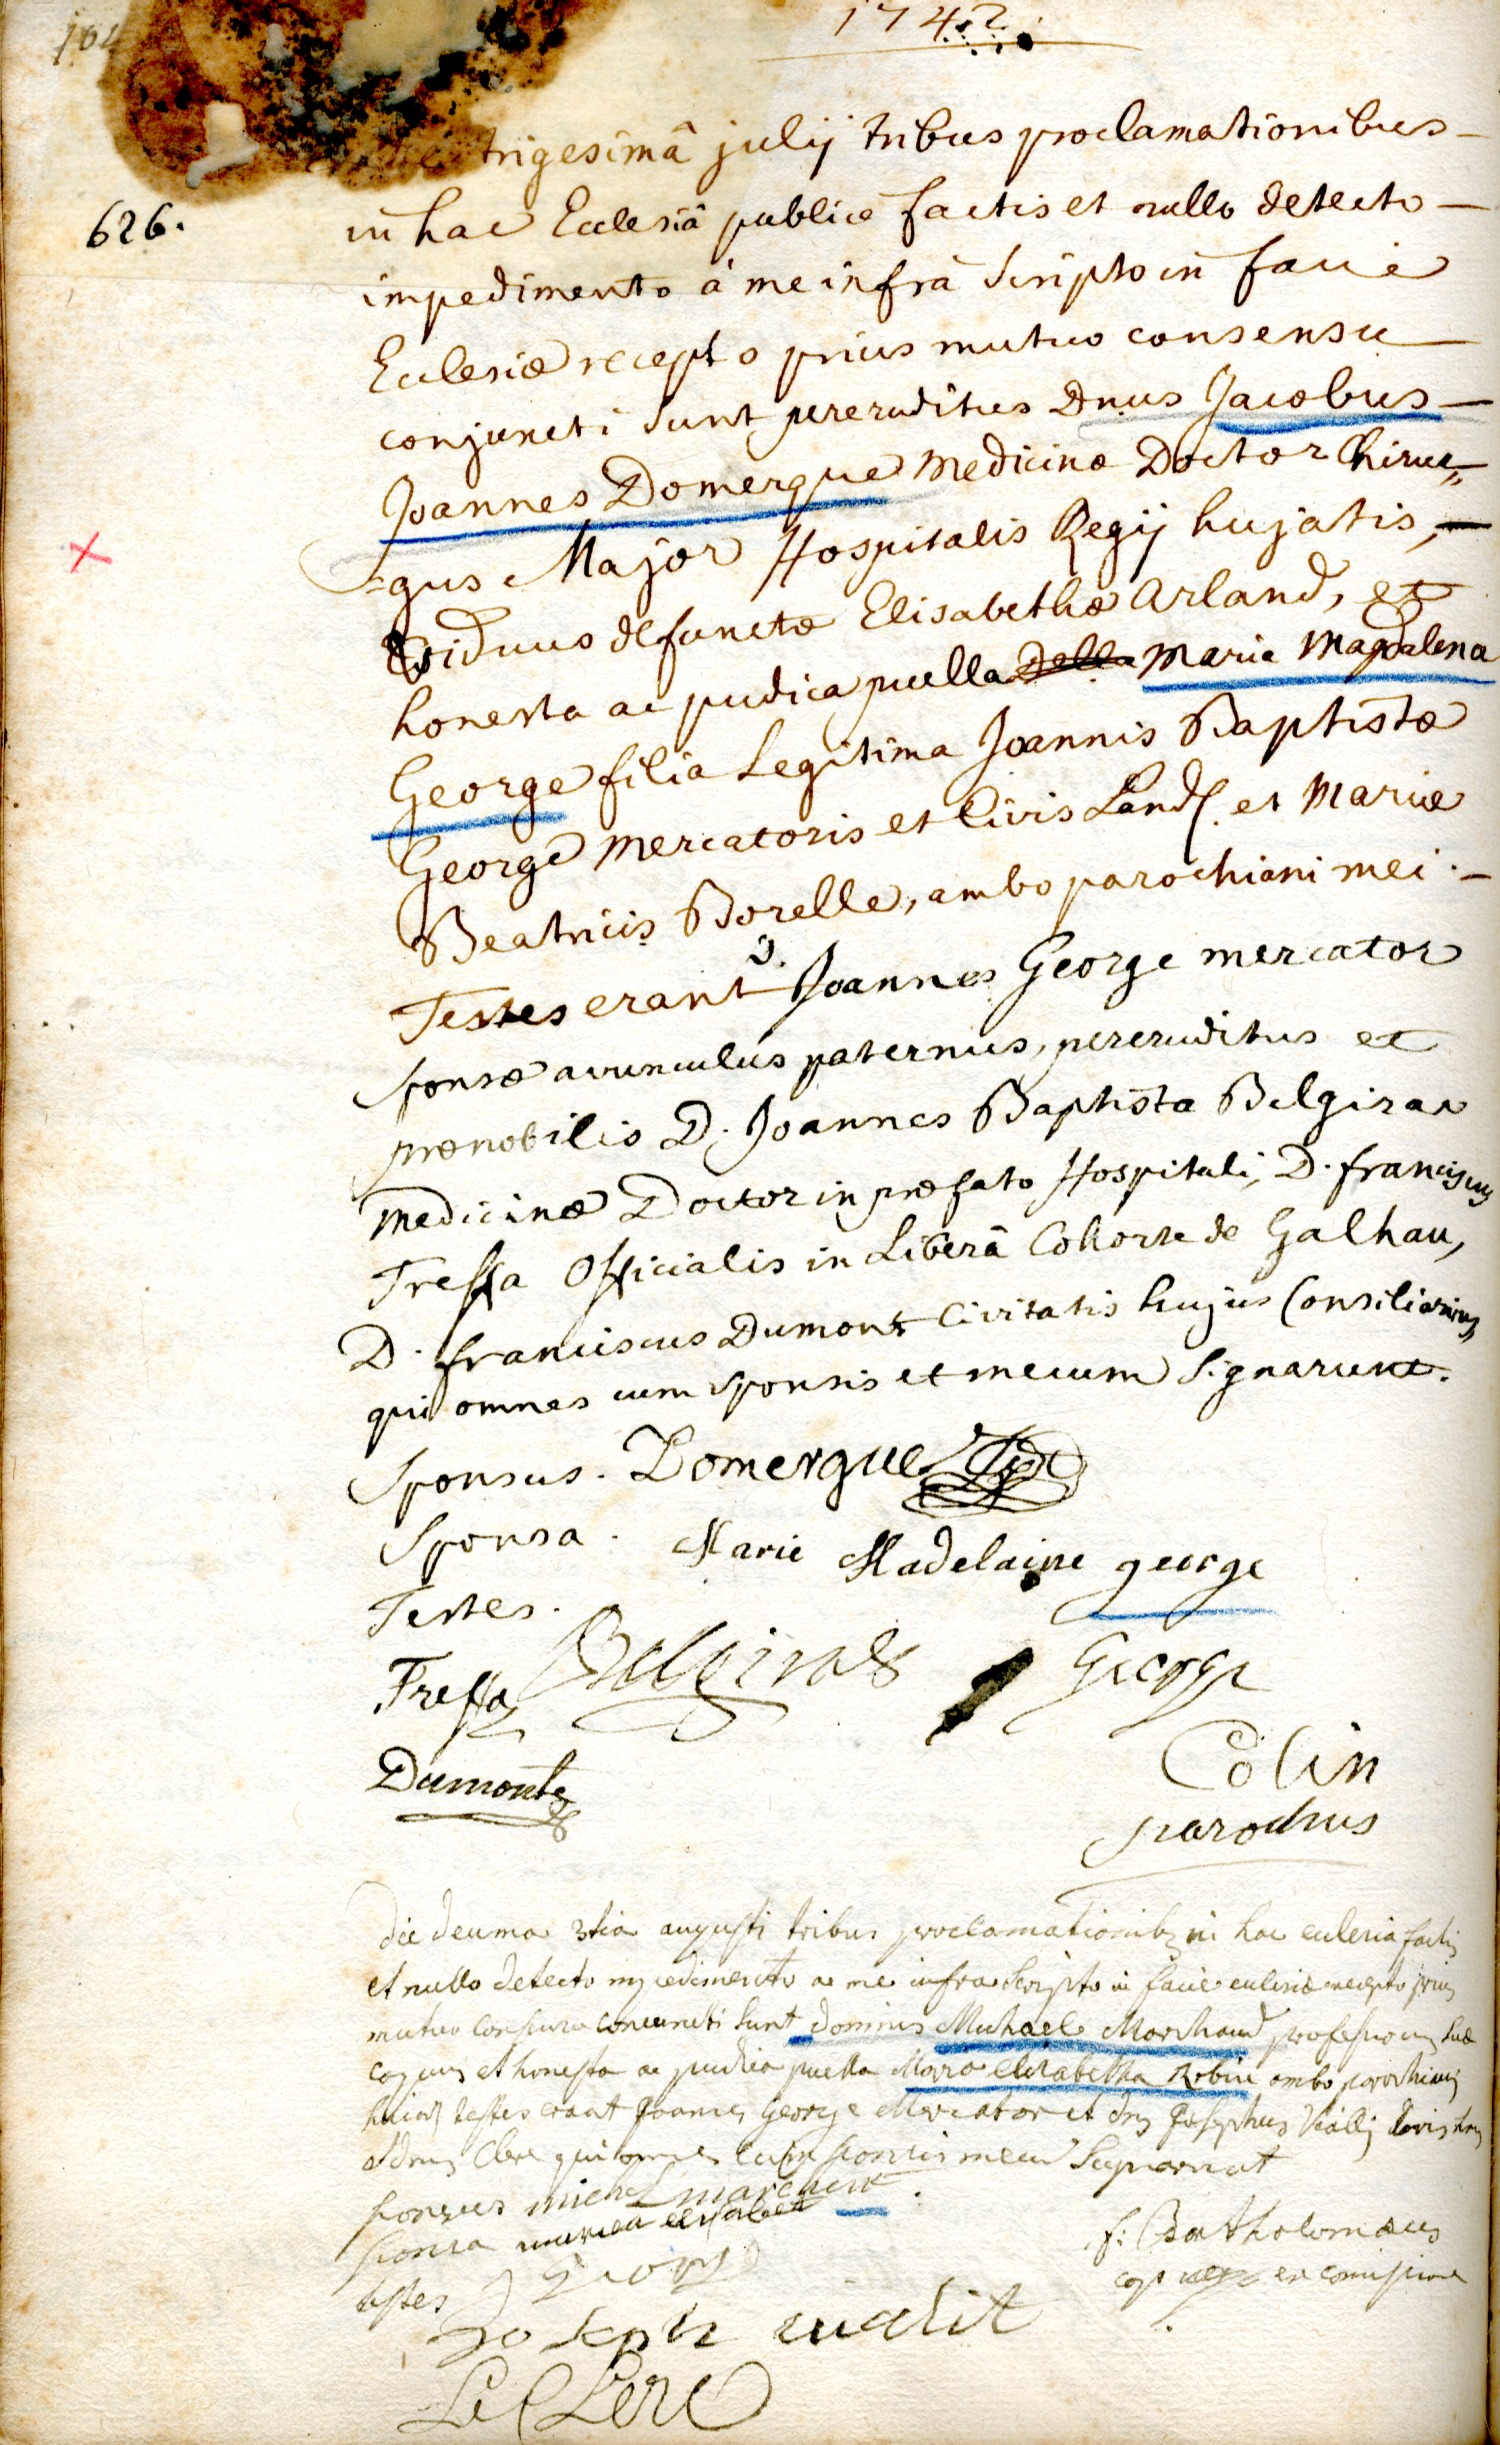 104
1742.
Die trigesimâ julij tribus proclamationibus
626.
in hac Ecclesiâ publicè factis et nullo detecto
impedimento à me infrà scripto in facie
Ecclesiæ recepto prius mutuo consensu
conjuncti sunt pereruditus Dnus Jacobus
Joannes Domergue Medicinæ Doctor Chirur=
=gus Major Hospitalis Regij hujatis,
Viduus defunctæ Elisabethæ Arland, et
honesta ac pudica puella Maria Magdalena
George filia Legitima Joannis Baptistæ
George Mercatoris et Civis Land. et Mariæ
Beatricis Borelle, ambo parochiani mei.
Testes erant D. Joannes George mercator
sponsæ avunculus paternus, pereruditus et
prænobilis D. Joannes Baptista Belgirac
Medicinæ Doctor in præfato Hospitali, D. franciscus
Tressa Officialis in Liberâ Cohorte de Galhau,
D. franciscus Dumont Civitatis hujus Consiliarius,
qui omnes cum sponsis et mecum signarunt.
Sponsus. Domergue
Sponsa. Marie Madelaine george
Testes.
Fressa George
Dumont
Colin
parochus
die decima 3tia augusti tribus proclamationibus in hac ecclesia factis
et nullo detecto impedimento a me infra scripto in facie ecclesiæ recepto prius
mutuo consensu conjuncti sunt dominus Michael Marchand professionis suæ
coquus et honesta ac pudica puella Maria elisabetha Robin ambo parochiani
testes erant Joannes George Mercator et dns Josephus
qui omnes cum sponsis mecum
sponsus michel
sponsa maria elisabet
f: Bartholomæus
testes
ex comissione
Joseph vialit
Le Clerc